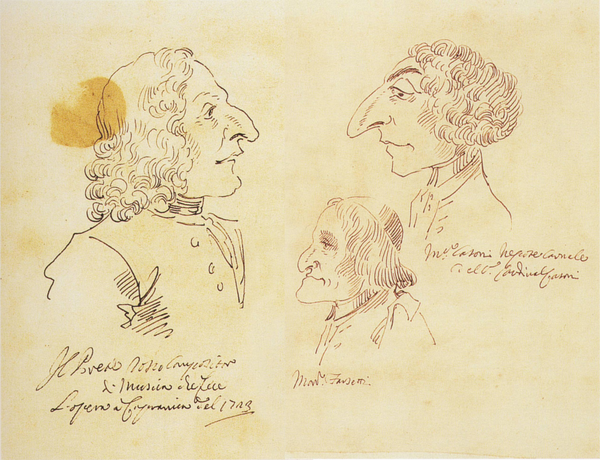 Il Prete rosso Compositor
di Musica che fece
L'opera a Capranica del 1723
Casoni Nepote Carnale
Cardinal Casoni
Farsetti